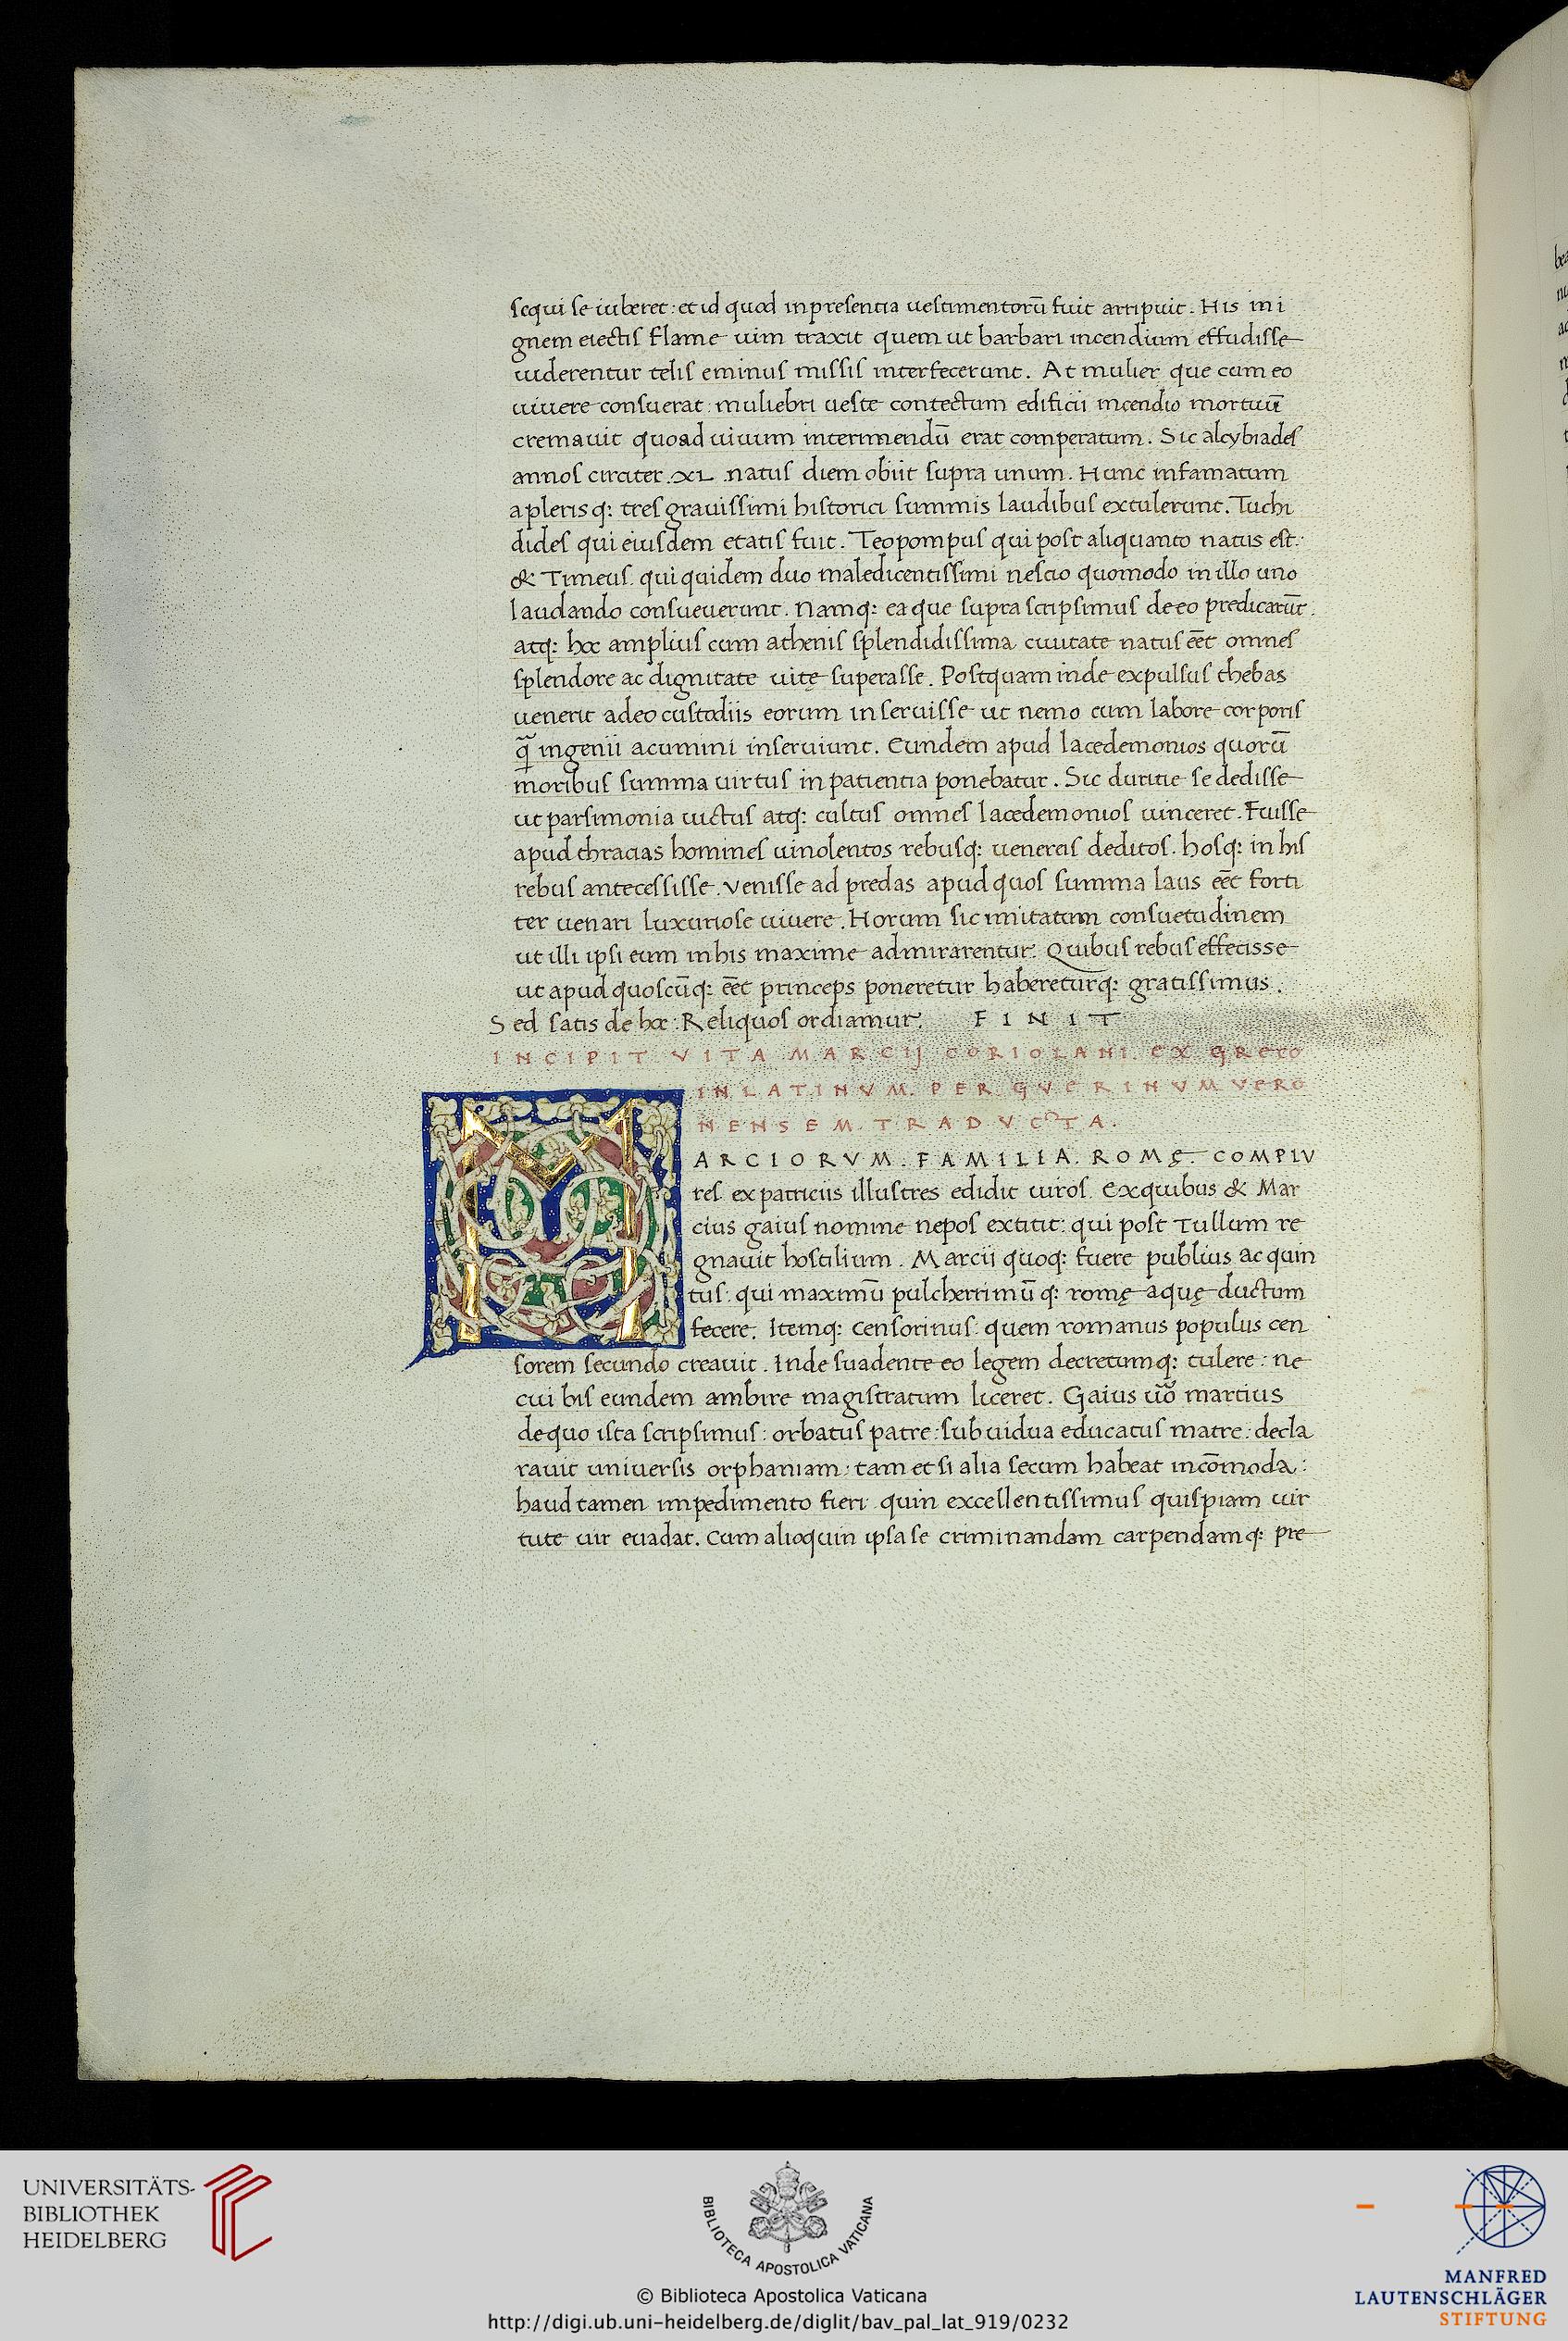 sequi se iuberet: et id quod in presentia uestimentorū fuit arripuit. His in i
gnem eiectis flame uim traxit quem ut barbari incendium effudisse
uiderentur telis eminus missis interfecerunt. At mulier que cum eo
uiuere consuerat: muliebri ueste contectum edificii incendio mortuū
cremauit quoad uiuum interimendū erat comperatum. Sic alcybiades
annos circiter .XL. natus diem obiit supra unum. Hunc infamatum
a plerisq: tres grauissimi historici summis laudibus extulerunt. Tuchi
dides qui eiusdem etatis fuit. Teopompus qui post aliquanto natus est.
& Timeus. qui quidem duo maledicentissimi nescio quomodo in illo uno
laudando consueuerunt. Namq: ea que supra scripsimus de eo predicarūt.
atq: hoc amplius cum athenis splendidissima ciuitate natus eēt omnes
splendore ac dignitate uitę superasse. Postquam inde expulsus thebas
uenerit adeo custodiis eorum inseruisse ut nemo eum labore corporis
q̄ ingenii acumini inseruiunt. Eundem apud lacedemonios quorū
moribus summa uirtus in patientia ponebatur. Sic duritie se dedisse
ut parsimonia uictus atq: cultus omnes lacedemonios uinceret. Fuisse
apud thracias homines uinolentos rebusq: uenereis deditos. hosq: in his
rebus antecessisse. venisse ad predas apud quos summa laus eēt forti
ter uenari luxuriose uiuere. Horum sic imitatum consuetudinem
ut illi ipsi eum in his maxime admirarentur. Quibus rebus effecisse
ut apud quoscūq: eēt princeps poneretur haberetᷣurq: gratissimus.
Sed satis de hoc. Reliquos ordiamur. FINIT
INCIPIT VITA MARCIJ CORIOLANI. EX GRECO
IN LATINVM. PER GVERINVM VERO
NENSEM TRADVCTA.
MARCIORVM. FAMILIA. ROMĘ. COMPLV
res. ex patriciis illustres edidit uiros. Ex quibus & Mar
cius gaius nomine nepos extitit: qui post Tullum re
gnauit hostilium. Marcii quoq: fuere publius ac quin
tus. qui maximū pulcherrimū q: romę aquę ductum
fecere. Itemq: censorinus. quem romanus populus cen
sorem secundo creauit. Inde suadente eo legem decretumq: tulere: ne
cui bis eundem ambire magistratum liceret. Gaius uō martius
de quo ista scripsimus: orbatus patre: sub uidua educatus matre: decla
rauit uniuersis orphaniam: tam et si alia secum habeat incōmoda:
haud tamen impedimento fieri quin excellentissimus quispiam uir
tute uir euadat. Cum alioquin ipsa se criminandam carpendamq: pre
UNIVERSITÄTS-
BIBLIOTHEK
HEIDELBERG
BIBLIOTECA APOSTOLICA VATICANA
© Biblioteca Apostolica Vaticana
http://digi.ub.uni-heidelberg.de/diglit/bav_pal_lat_919/0232
MANFRED
LAUTENSCHLÄGER
STIFTUNG